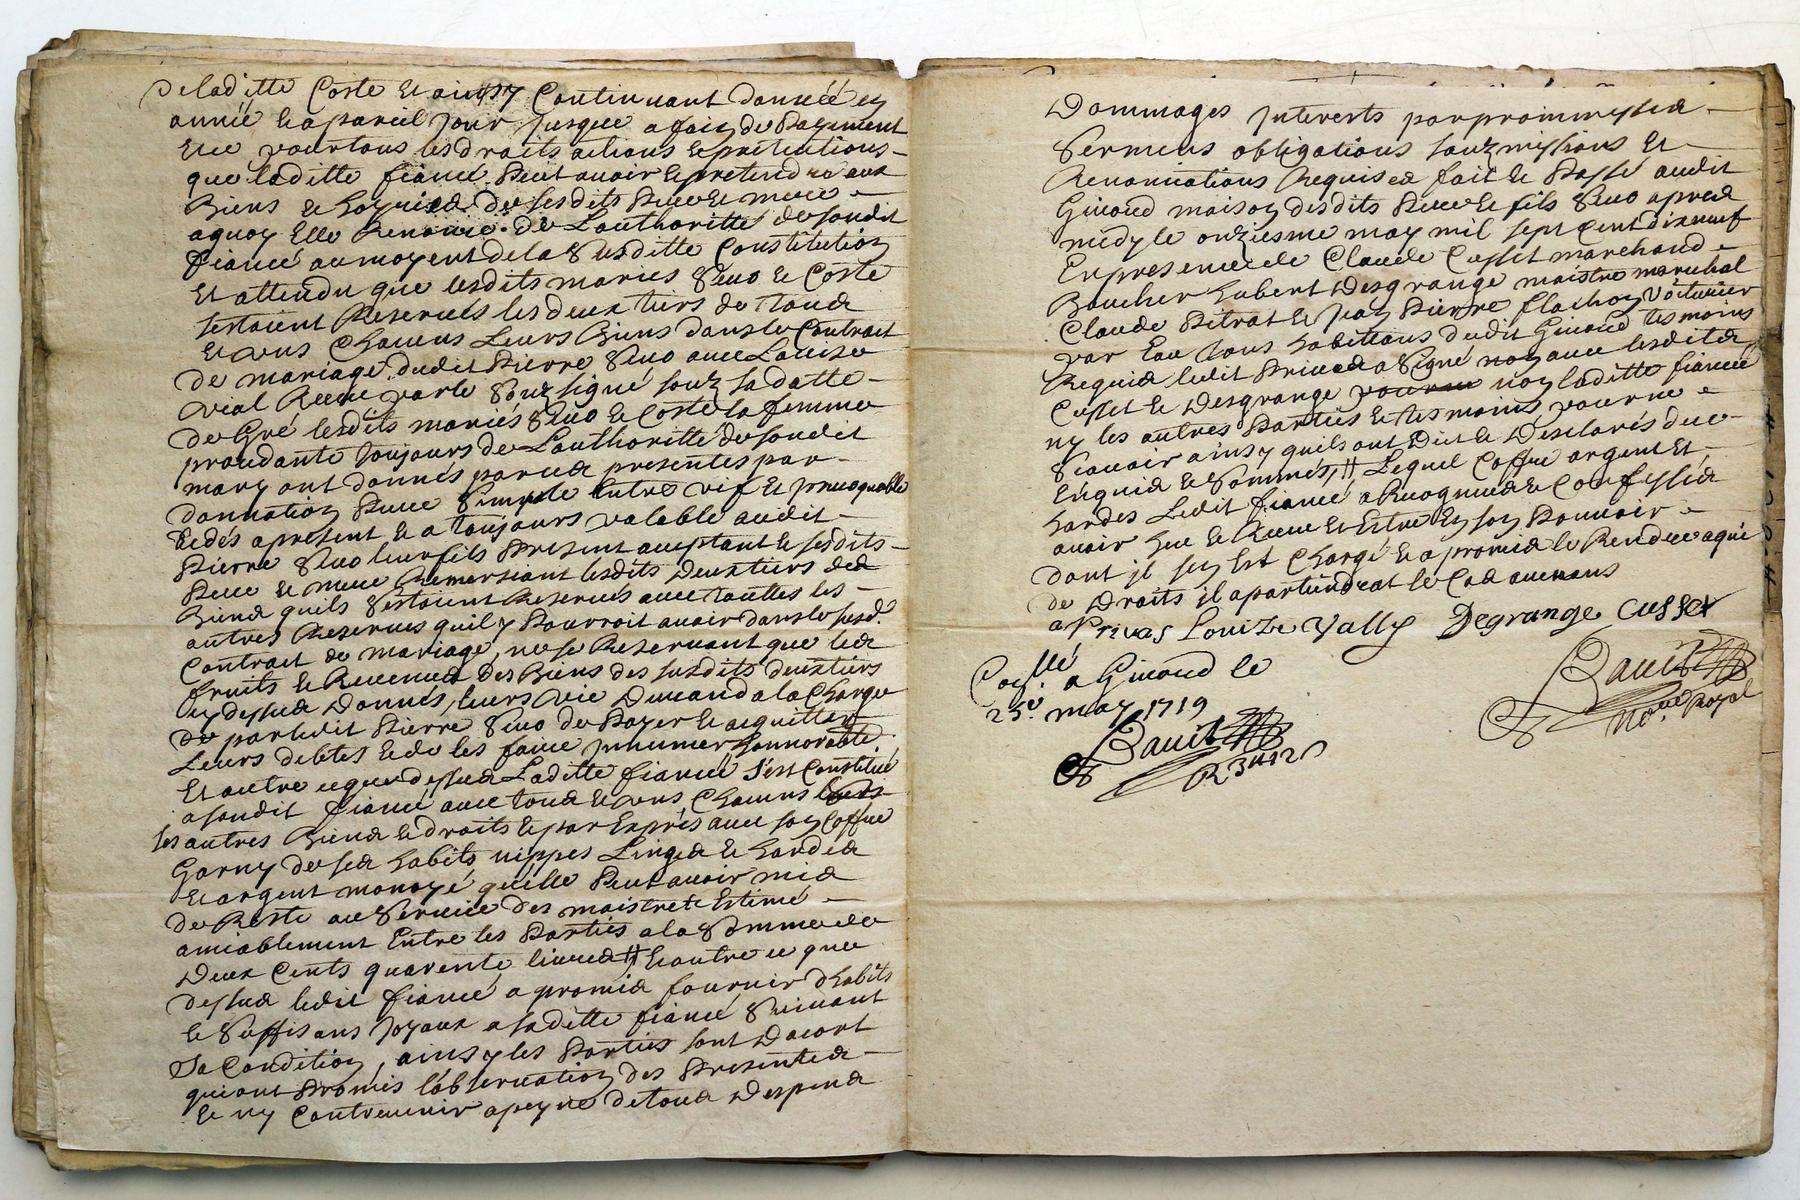 De laditte Coste Et ainsy Continuant dannéé en
année a pareil Jour Jusques a fain de Payement
Et ce pour tous les droits actions & pretentions
que laditte fiancé Peut avoir & pretendre aux
Biens & hoyries de sesdits Pere & mere
aquoy Elle Renonce de Lauthoritté de sondit
fiancé au moyent de la Susditte Constitution
Et attendu que lesdits mariés & Coste
sestoient Reservés les deux tiers de tous
Et uns Chacuns Leurs Biens dans le Contrait
de mariage dudit Pierre avec Louise
Vial Receu par le Souzsigné souz sa datte
de Gré lesdits mariés & Coste la femme
procedante toujours de Lauthoritté de sondit
mary ont donnés par ces presentes par
donnation Pure Simple Entre vif Et Jrrevoquable
Cedés apresent & a toujours valable audit
Pierre leur fils Present acceptant & sesdits
Pere & mere Remersiant lesdits Deux tiers des
Biens quils Sestoient Reservés avec touttes les
autres Reserves quil y Pourroit avoir dans le susd.
Contrait de mariage, ne se Reservant que les
fruits & Revenus des Biens des susdits deux tiers
cy dessus Donnés, leurs vie Durand a la Charge
de par ledit Pierre de Payer & acquitter
Leurs debtes & de les faire Jnhumer honnorable.
Et outre ce que dessus Laditte fiancé s'est Constitué
a sondit fiancé avec tous & uns Chacuns
ses autres Biens & droits & par Exprés avec son Coffre
Garny de ses habits nippes Linges & hardes
& argent monoyé quelle Peut avoir mis
de Reste au Service des maistre & Estimé
amiablement Entre les Parties a la Somme de
Deux Cents quarente livres & outre ce que
dessus ledit fiancé a promis fournir d'habits
& Suffisans Joyaux a saditte fiancé Suivant
Sa Condition, ainsy les Parties sont Dacort
qui ont Promis l'observation des Presentes
& ny Contrevenir a peyne de tous Despens
Dommages Jnterests par prommesses
Sermens obligations souzmissions Et
Renonnations Requises fait & Passé audit
Givord maison desdits Pere & fils apres
midy le onziesme may mil sept Cent dix neuf
En presence de Claude Cusset marchand
Boucher hubert Desgrange maistre marechal
Claude Pitrat & Jean Pierre flachon Voiturier
par Eau tous habittans dudit Givord tesmoins
Requis ledit Privas a Signé non avec lesdits
Cusset & Desgrange non laditte fiancée
ny les autres Parties & tesmoins pour ne
Scavoir ainsy quils ont Dict & Desclarés de ce
Enquis & Sommés, # Lequel Coffre argent Et
hardes Ledit fiancé a Recognus & Confessés
avoir heu & Receu & Estre En son Pouvoir
dont il sen Est Chargé & a promis le Rendre a qui
de Droits il apartiendrat le Cas avenans
aPrivas Louize Vally Degrange Cusset
Con.llé a Givord le
25e. may 1719
R 3# 12 s
No.re Royal